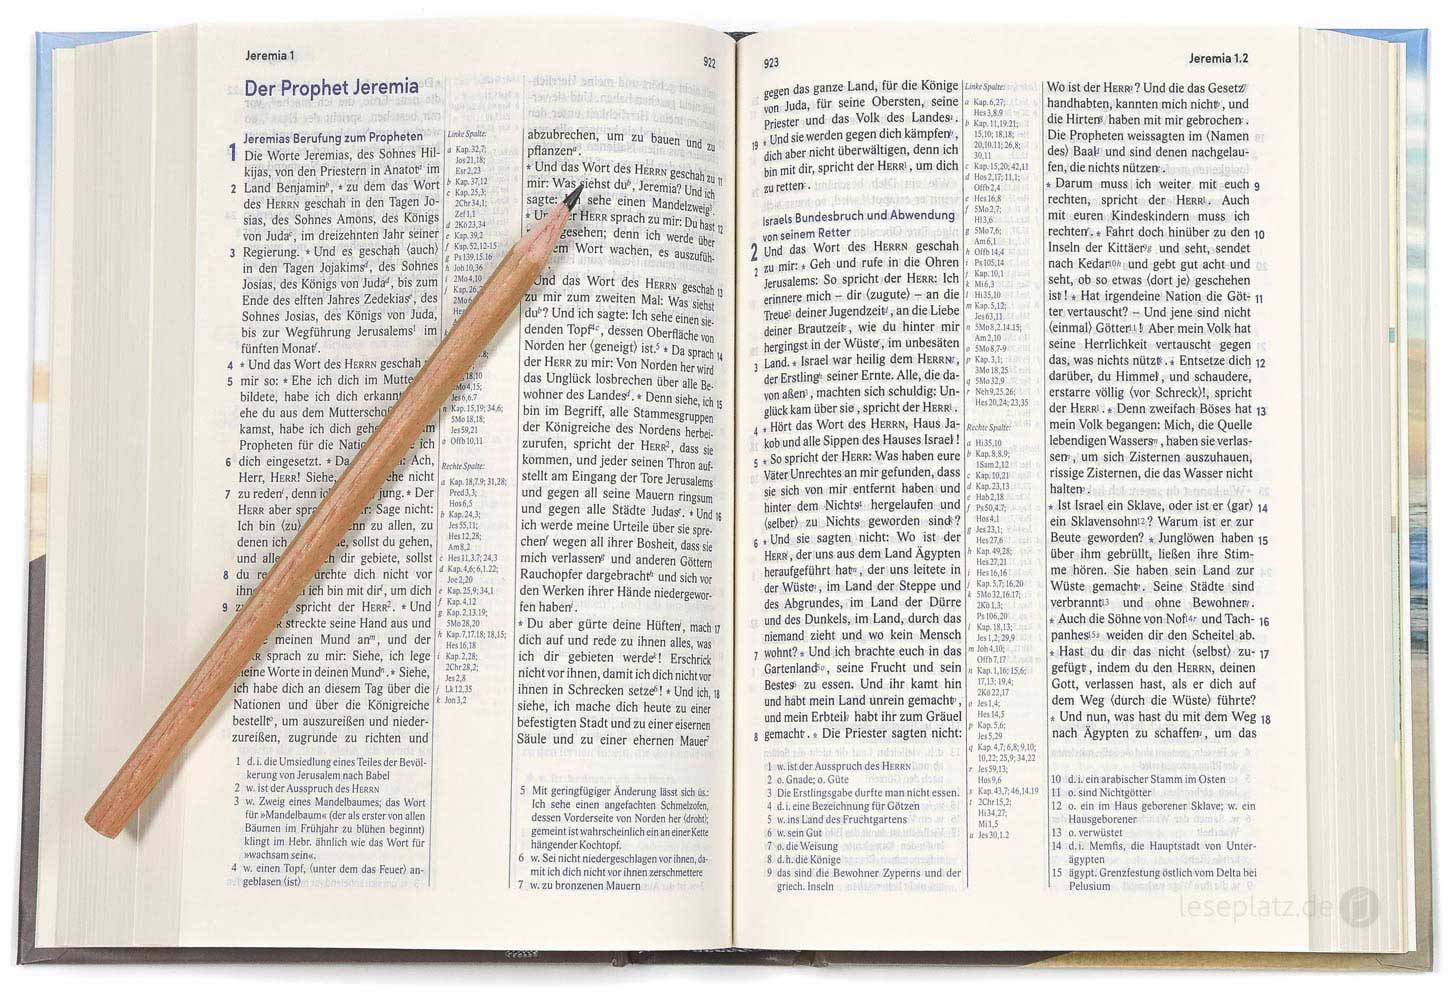 Jeremia 1
922
Der Prophet Jeremia
Jeremias Berufung zum Propheten
1 Die Worte Jeremias, des Sohnes Hil-
kijas, von den Priestern in Anatot im
2 Land Benjamin, * zu dem das Wort
des HERRN geschah in den Tagen Jo-
sias, des Sohnes Amons, des Königs
von Juda, im dreizehnten Jahr seiner
3 Regierung. * Und es geschah ⟨auch⟩
in den Tagen Jojakims, des Sohnes
Josias, des Königs von Juda, bis zum
Ende des elften Jahres Zedekias, des
Sohnes Josias, des Königs von Juda,
bis zur Wegführung Jerusalems¹ im
fünften Monat.
4 * Und das Wort des HERRN geschah
5 mir so: * Ehe ich dich im Mutte
bildete, habe ich dich erkann
ehe du aus dem Mutterscho
kamst, habe ich dich gehe
Propheten für die Natio ich
6 dich eingesetzt. * Da Ach,
Herr, HERR! Siehe, he nicht
7 zu reden, denn ic jung. * Der
HERR aber spra Sage nicht:
Ich bin ⟨zu⟩ nn zu allen, zu
denen ich e, sollst du gehen,
und alle dir gebiete, sollst
8 du re rchte dich nicht vor
ihn ich bin mit dir, um dich
9 z spricht der HERR². * Und
streckte seine Hand aus und
meinen Mund an, und der
sprach zu mir: Siehe, ich lege
meine Worte in deinen Mund. * Siehe,
ich habe dich an diesem Tag über die
Nationen und über die Königreiche
bestellt, um auszureißen und nieder-
zureißen, zugrunde zu richten und
1 d. i. die Umsiedlung eines Teiles der Bevöl-
kerung von Jerusalem nach Babel
2 w. ist der Ausspruch des HERRN
3 w. Zweig eines Mandelbaumes; das Wort
für »Mandelbaum« (der als erster von allen
Bäumen im Frühjahr zu blühen beginnt)
klingt im Hebr. ähnlich wie das Wort für
»wachsam sein«.
4 w. einen Topf, ⟨unter dem das Feuer⟩ an-
geblasen ⟨ist⟩
Linke Spalte:
a Kap. 32,7;
Jos 21,18;
Esr 2,23
b Kap. 37,12
c Kap. 25,3;
2Chr 34,1;
Zef 1,1
d 2Kö 23,34
e Kap. 39,2
f Kap. 52,12-15
g Ps 139,15.16
h Joh 10,36
i 2Mo 4,10
j Kap. 26,
2Mo 6
18,10
5Mo 4,15;
Jes 6,6.7
n Kap. 15,19; 34,6;
5Mo 18,18;
Jes 59,21
o Offb 10,11
Rechte Spalte:
a Kap. 18,7.9; 31,28;
Pred 3,3;
Hos 6,5
b Kap. 24,3;
Jes 55,11;
Hes 12,28;
Am 8,2
c Hes 11,3.7; 24,3
d Kap. 4,6; 6,1.22;
Joe 2,20
e Kap. 25,9; 34,1
f Kap. 4,12
g Kap. 2,13.19;
5Mo 28,20
h Kap. 7,17.18; 18,15;
Hes 16,18
i Kap. 2,28;
2Chr 28,2;
Jes 2,8
j Lk 12,35
k Jon 3,2
abzubrechen, um zu bauen und zu
pflanzen.
* Und das Wort des HERRN geschah zu 11
mir: Was siehst du, Jeremia? Und ich
sage: sehe einen Mandelzweig³.
* Un HERR sprach zu mir: Du hast 12
gesehen; denn ich werde über
em Wort wachen, es auszufüh-
Und das Wort des HERRN geschah 13
zu mir zum zweiten Mal: Was siehst
du? Und ich sagte: Ich sehe einen sie-
denden Topf⁴, dessen Oberfläche von
Norden her ⟨geneigt⟩ ist.⁵ * Da sprach 14
der HERR zu mir: Von Norden her wird
das Unglück losbrechen über alle Be-
wohner des Landes. * Denn siehe, ich 15
bin im Begriff, alle Stammesgruppen
der Königreiche des Nordens herbei-
zurufen, spricht der HERR², dass sie
kommen, und jeder seinen Thron auf-
stellt am Eingang der Tore Jerusalems
und gegen all seine Mauern ringsum
und gegen alle Städte Judas. * Und 16
ich werde meine Urteile über sie spre-
chen wegen all ihrer Bosheit, dass sie
mich verlassen und anderen Göttern
Rauchopfer dargebracht und sich vor
den Werken ihrer Hände niedergewor-
fen haben.
* Du aber gürte deine Hüften, mach 17
dich auf und rede zu ihnen alles, was
ich dir gebieten werde! Erschrick
nicht vor ihnen, damit ich dich nicht vor
ihnen in Schrecken setze⁶! * Und ich, 18
siehe, ich mache dich heute zu einer
befestigten Stadt und zu einer eisernen
Säule und zu einer ehernen Mauer⁷
5 Mit geringfügiger Änderung lässt sich üs.:
Ich sehe einen angefachten Schmelzofen,
dessen Vorderseite von Norden her ⟨droht⟩;
gemeint ist wahrscheinlich ein an einer Kette
hängender Kochtopf.
6 w. Sei nicht niedergeschlagen vor ihnen, da-
mit ich dich nicht vor ihnen zerschmettere
7 w. zu bronzenen Mauern
923
Jeremia 1.2
gegen das ganze Land, für die Könige
von Juda, für seine Obersten, seine
Priester und das Volk des Landes.
19 * Und sie werden gegen dich kämpfen,
dich aber nicht überwältigen, denn ich
bin mit dir, spricht der HERR, um dich
zu retten.
Israels Bundesbruch und Abwendung
von seinem Retter
2 Und das Wort des HERRN geschah
2 zu mir: * Geh und rufe in die Ohren
Jerusalems: So spricht der HERR: Ich
erinnere mich – dir ⟨zugute⟩ – an die
Treue² deiner Jugendzeit, an die Liebe
deiner Brautzeit, wie du hinter mir
hergingst in der Wüste, im unbesäten
3 Land. * Israel war heilig dem HERRN,
der Erstling³ seiner Ernte. Alle, die da-
von aßen, machten sich schuldig: Un-
glück kam über sie, spricht der HERR¹.
4 * Hört das Wort des HERRN, Haus Ja-
kob und alle Sippen des Hauses Israel!
5 * So spricht der HERR: Was haben eure
Väter Unrechtes an mir gefunden, dass
sie sich von mir entfernt haben und
hinter dem Nichts⁴ hergelaufen und
⟨selber⟩ zu Nichts geworden sind?
6 * Und sie sagten nicht: Wo ist der
HERR, der uns aus dem Land Ägypten
heraufgeführt hat, der uns leitete in
der Wüste, im Land der Steppe und
des Abgrundes, im Land der Dürre
und des Dunkels, im Land, durch das
niemand zieht und wo kein Mensch
7 wohnt? * Und ich brachte euch in das
Gartenland⁵, seine Frucht und sein
Bestes⁶ zu essen. Und ihr kamt hin
und habt mein Land unrein gemacht,
und mein Erbteil habt ihr zum Gräuel
8 gemacht. * Die Priester sagten nicht:
1 w. ist der Ausspruch des HERRN
2 o. Gnade; o. Güte
3 Die Erstlingsgabe durfte man nicht essen.
4 d. i. eine Bezeichnung für Götzen
5 w. ins Land des Fruchtgartens
6 w. sein Gut
7 o. die Weisung
8 d. h. die Könige
9 das sind die Bewohner Zyperns und der
griech. Inseln
Linke Spalte:
a Kap. 6,27;
Hes 3,8.9
b Kap. 11,19.21;
15,10; 18,18;
20,10.11; 26,8;
30,11
c Kap. 15,20; 42,11
d Hos 2,17; 11,1;
Offb 2,4
e Hes 16,8
f 5Mo 2,7;
Hl 3,6
g 5Mo 7,6;
Am 6,1
h Offb 14,4
i Ps 105,14
j Kap. 10,1
k Mi 6,3
l Hi 35,10
m Kap. 5,12;
Jes 63,11
n 5Mo 8,2.14.15;
Am 2,10
o 5Mo 8,7-9
p Kap. 3,1;
3Mo 18,25
q 5Mo 32,9
r Neh 9,25.26;
Hes 20,24; 23,35
Rechte Spalte:
a Hi 35,10
b Kap. 8,8.9;
1Sam 2,12
c Kap. 10,21
d Kap. 23,13
e Hab 2,18
f Ps 50,4.7;
Hos 4,1
g Jes 23,1;
Hes 27,6
h Kap. 49,28;
Hes 27,21
i Hes 16,16
j Kap. 5,7; 16,20
k 5Mo 32,16.17;
2Kö 1,3;
Ps 106,20
l Kap. 18,13;
Jes 1,2; 29,9
m Joh 4,10;
Offb 7,17
n Kap. 1,16; 15,6;
17,13; 19,4;
2Kö 22,17
o Jes 1,4;
Hes 14,5
p Kap. 5,6;
Jes 5,29
q Kap. 4,7; 6,8; 9,10;
10,22; 25,9; 34,22
r Jes 59,13;
Hos 9,6
s Kap. 43,7; 46,14.19
t 2Chr 15,2;
Hi 34,27;
Mi 1,5
u Jes 30,1.2
Wo ist der HERR? Und die das Gesetz⁷
handhabten, kannten mich nicht, und
die Hirten⁸ haben mit mir gebrochen.
Die Propheten weissagten im ⟨Namen
des⟩ Baal und sind denen nachgelau-
fen, die nichts nützen.
* Darum muss ich weiter mit euch 9
rechten, spricht der HERR¹. Auch
mit euren Kindeskindern muss ich
rechten. * Fahrt doch hinüber zu den 10
Inseln der Kittäer⁹ und seht, sendet
nach Kedar¹⁰ und gebt gut acht und
seht, ob so etwas ⟨dort je⟩ geschehen
ist! * Hat irgendeine Nation die Göt- 11
ter vertauscht? – Und jene sind nicht
⟨einmal⟩ Götter¹¹! Aber mein Volk hat
seine Herrlichkeit vertauscht gegen
das, was nichts nützt. * Entsetze dich 12
darüber, du Himmel, und schaudere,
erstarre völlig ⟨vor Schreck⟩!, spricht
der HERR¹. * Denn zweifach Böses hat 13
mein Volk begangen: Mich, die Quelle
lebendigen Wassers, haben sie verlas-
sen, um sich Zisternen auszuhauen,
rissige Zisternen, die das Wasser nicht
halten.
* Ist Israel ein Sklave, oder ist er ⟨gar⟩ 14
ein Sklavensohn¹²? Warum ist er zur
Beute geworden? * Junglöwen haben 15
über ihm gebrüllt, ließen ihre Stim-
me hören. Sie haben sein Land zur
Wüste gemacht. Seine Städte sind
verbrannt¹³ und ohne Bewohner.
* Auch die Söhne von Nof¹⁴ und Tach- 16
panhes¹⁵ weiden dir den Scheitel ab.
* Hast du dir das nicht ⟨selbst⟩ zu- 17
gefügt, indem du den HERRN, deinen
Gott, verlassen hast, als er dich auf
dem Weg ⟨durch die Wüste⟩ führte?
* Und nun, was hast du mit dem Weg 18
nach Ägypten zu schaffen, um das
10 d. i. ein arabischer Stamm im Osten
11 o. sind Nichtgötter
12 o. ein im Haus geborener Sklave; w. ein
Hausgeborener
13 o. verwüstet
14 d. i. Memfis, die Hauptstadt von Unter-
ägypten
15 ägypt. Grenzfestung östlich vom Delta bei
Pelusium
leseplatz.de